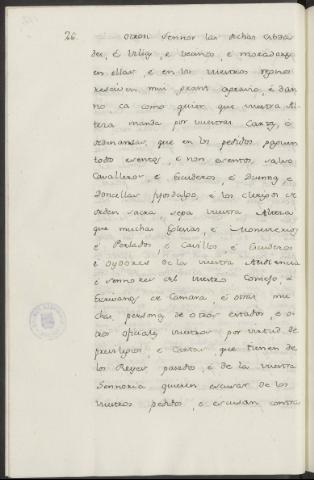 26. Otrosi Sennor las dichas Cibda
des, é Villas, e vecinos, e moradores
en ellas, e en los vuestros regnos
resciven mui grant agravio, é dan
no ca como quier que vuestra Al
teza manda por vuestras Cartas, ó
ordenanzas, que en los pedidos paguen
todos esentos, e non esentos, salvo
Cavalleros, e Escuderos, é Duenas, e
Doncellas fijosdalgo, é los clerigos de
orden sacra, sepa vuestra Alteza
que muchas Eglesias, e Monesterios
é Perlados, é Cavallos, é Escuderos
é oydores de la vuestra Audiencia
é Sennores del vuestro Consejo, é
Escrivanos de Camara, é otras mu
chas personas de otros estados, e o
tros oficiales vuestros por virtud de
previlegios, e Cartas, que tienen de
los Reyes pasados, é de la vuestra
Sennoria quieren escusar de los
vuestros pedidos, e escusan contra